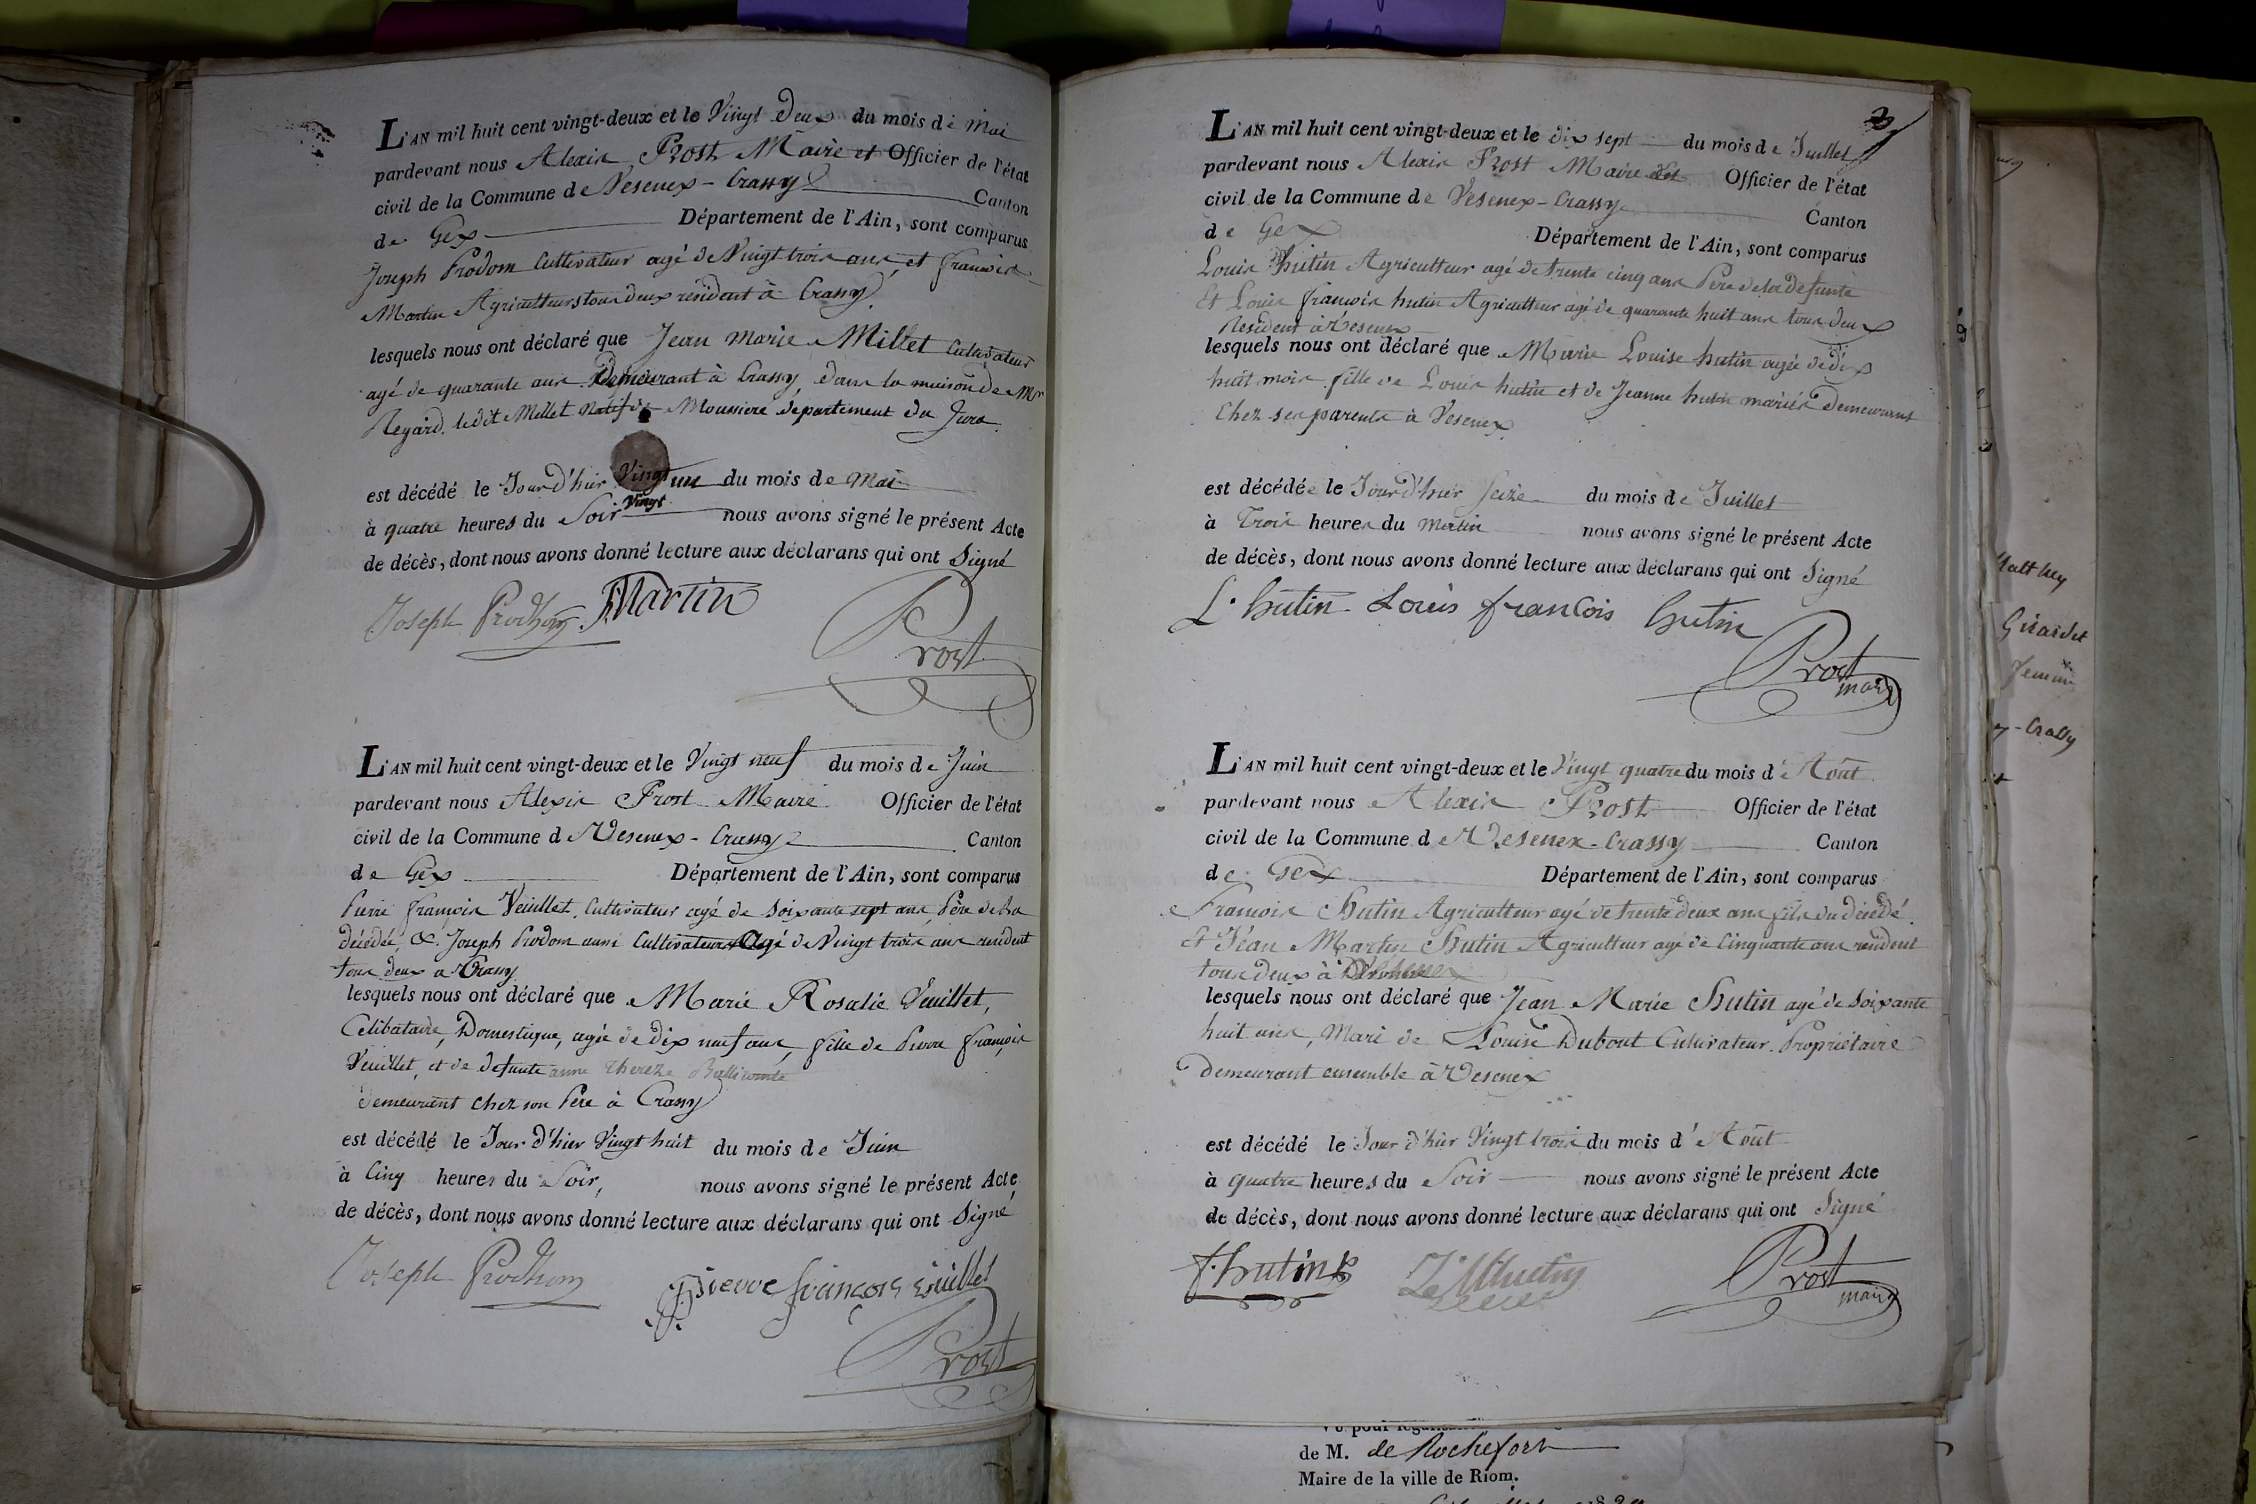 L'AN mil huit cent vingt-deux et le Vingt Deux du mois de Mai
pardevant nous Alexis Prost Maire et Officier de l'état
civil de la Commune de Vesenex-Crassy Canton
de Gex Département de l'Ain, sont comparus
Joseph Prodom Cultivateur agé de Vingt trois ans, et francois
Martin Agriculteurs tous deux résident à Crassy
lesquels nous ont déclaré que Jean Marie Millet Cultivateur
agé de quarante ans Demeurant à Crassy, dans la maison de Mr
Regard. ledit Millet Natif de Moussiere département du Jura.
est décédé le Jour d'hier Vingt un du mois de Mai
Vingt
à quatre heures du Soir nous avons signé le présent Acte
de décès, dont nous avons donné lecture aux déclarans qui ont Signé
Joseph Prodhom f. Martin
Prost
L'AN mil huit cent vingt-deux et le Vingt neuf du mois de Juin
pardevant nous Alexis Prost Maire Officier de l'état
civil de la Commune de Vesenex-Crassy Canton
de Gex Département de l'Ain, sont comparus
Pierre francois Veuillet, Cultivateur agé de soixante sept ans, Père de la
décédée, &. Joseph Prodom aussi Cultivateur Agé de Vingt trois ans resident
tous deux a Crassy
lesquels nous ont déclaré que Marie Rosalie Veuillet,
Célibataire, Domestique, agée de dix neuf ans, fille de Pierre françois
Veuillet, et de defunte anne Thereze
demeurant chez son Père à Crassy
est décédé le Jour d'hier Vingt huit du mois de Juin
à Cinq heures du Soir, nous avons signé le présent Acte
de décès, dont nous avons donné lecture aux déclarans qui ont Signé
Joseph Prodhom Pierre françois veuillet
Prost
3
L'AN mil huit cent vingt-deux et le dix sept du mois de Juillet
pardevant nous Alexis Prost Maire Officier de l'état
civil de la Commune de Vesenex-Crassy Canton
de Gex Département de l'Ain, sont comparus
Louis hutin Agriculteur agé de trente cinq ans Père de la defunte
Et Louis francois hutin Agriculteur agé de quarante huit ans tous deux
Resident à Vesenex
lesquels nous ont déclaré que Marie Louise hutin agée de dix
huit mois fille de Louis hutin et de Jeanne hutin mariés Demeurant
Chez ses parents à Vesenex
est décédée le Jour d'hier seize du mois de Juillet
à Trois heures du Matin nous avons signé le présent Acte
de décès, dont nous avons donné lecture aux déclarans qui ont Signé
L. hutin Louis francois hutin
Prost
maire
L'AN mil huit cent vingt-deux et le Vingt quatre du mois d'Août
pardevant nous Alexis Prost Officier de l'état
civil de la Commune de Vesenex-Crassy Canton
de Gex Département de l'Ain, sont comparus
Francois Hutin Agriculteur agé de trente deux ans fils du décédé.
Et Jean Marthy Hutin Agriculteur agé de Cinquante ans resident
tous deux à
lesquels nous ont déclaré que Jean Marie Hutin agé de soixante
huit ans, Mari de Louise Dubout Cultivateur Propriétaire
Demeurant ensemble à Vesenex
est décédé le Jour d'hier Vingt trois du mois d'Août
à quatre heures du Soir nous avons signé le présent Acte
de décès, dont nous avons donné lecture aux déclarans qui ont Signé
f. hutin J. M hutin Prost
maire
Girardet
y-Crassy
de M. de Rochefort
Maire de la ville de Riom.